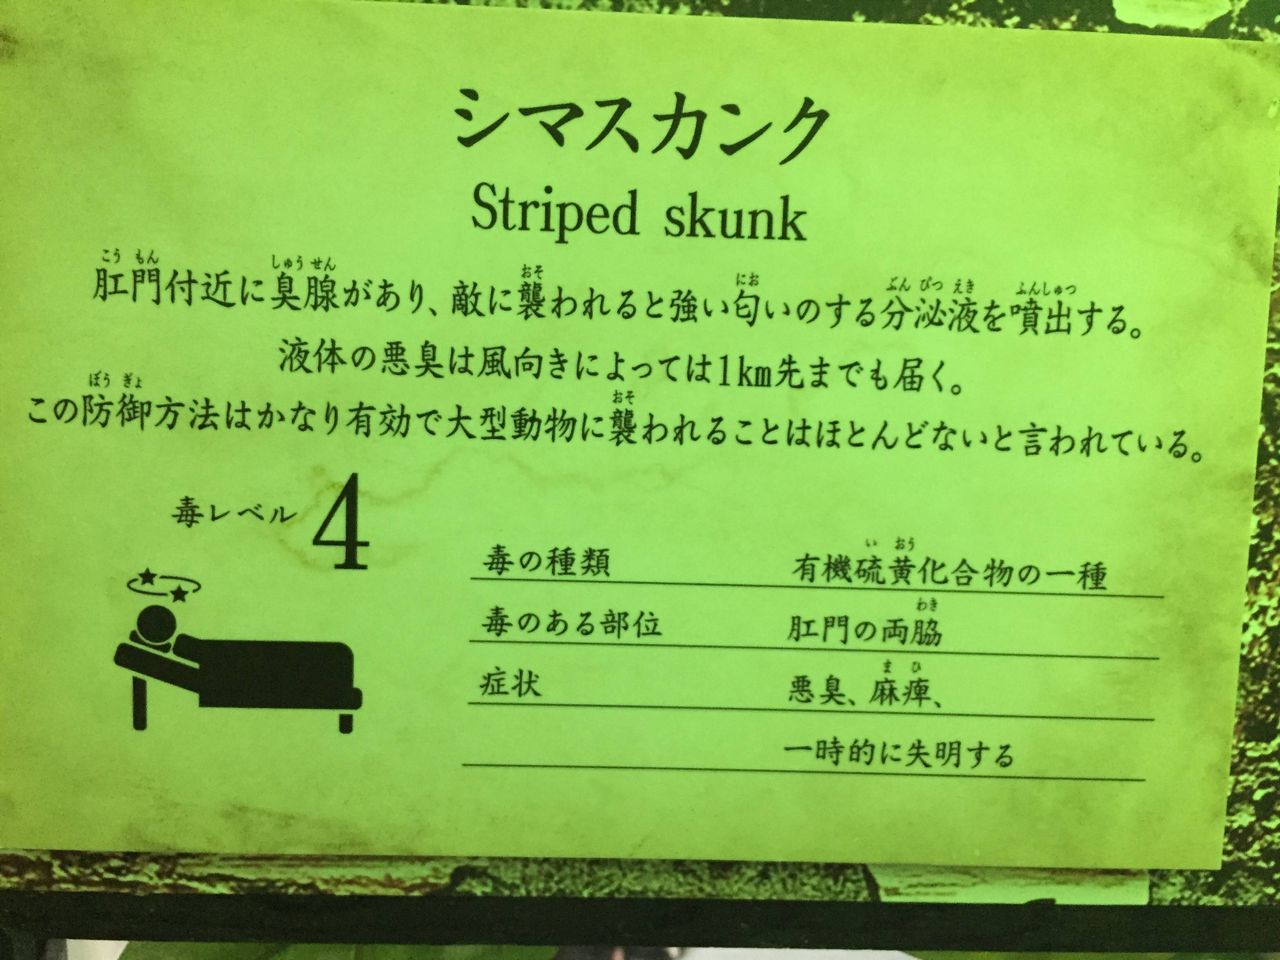 シマスカンク
Striped skunk
肛門付近に臭腺があり、敵に襲われると強い匂いのする分泌液を噴出する。
液体の悪臭は風向きによっては1km先までも届く。
この防御方法はかなり有効で大型動物に襲われることはほとんどないと言われている。
毒レベル 4
毒の種類 有機硫黄化合物の一種
毒のある部位 肛門の両脇
症状 悪臭、麻痺、
一時的に失明する